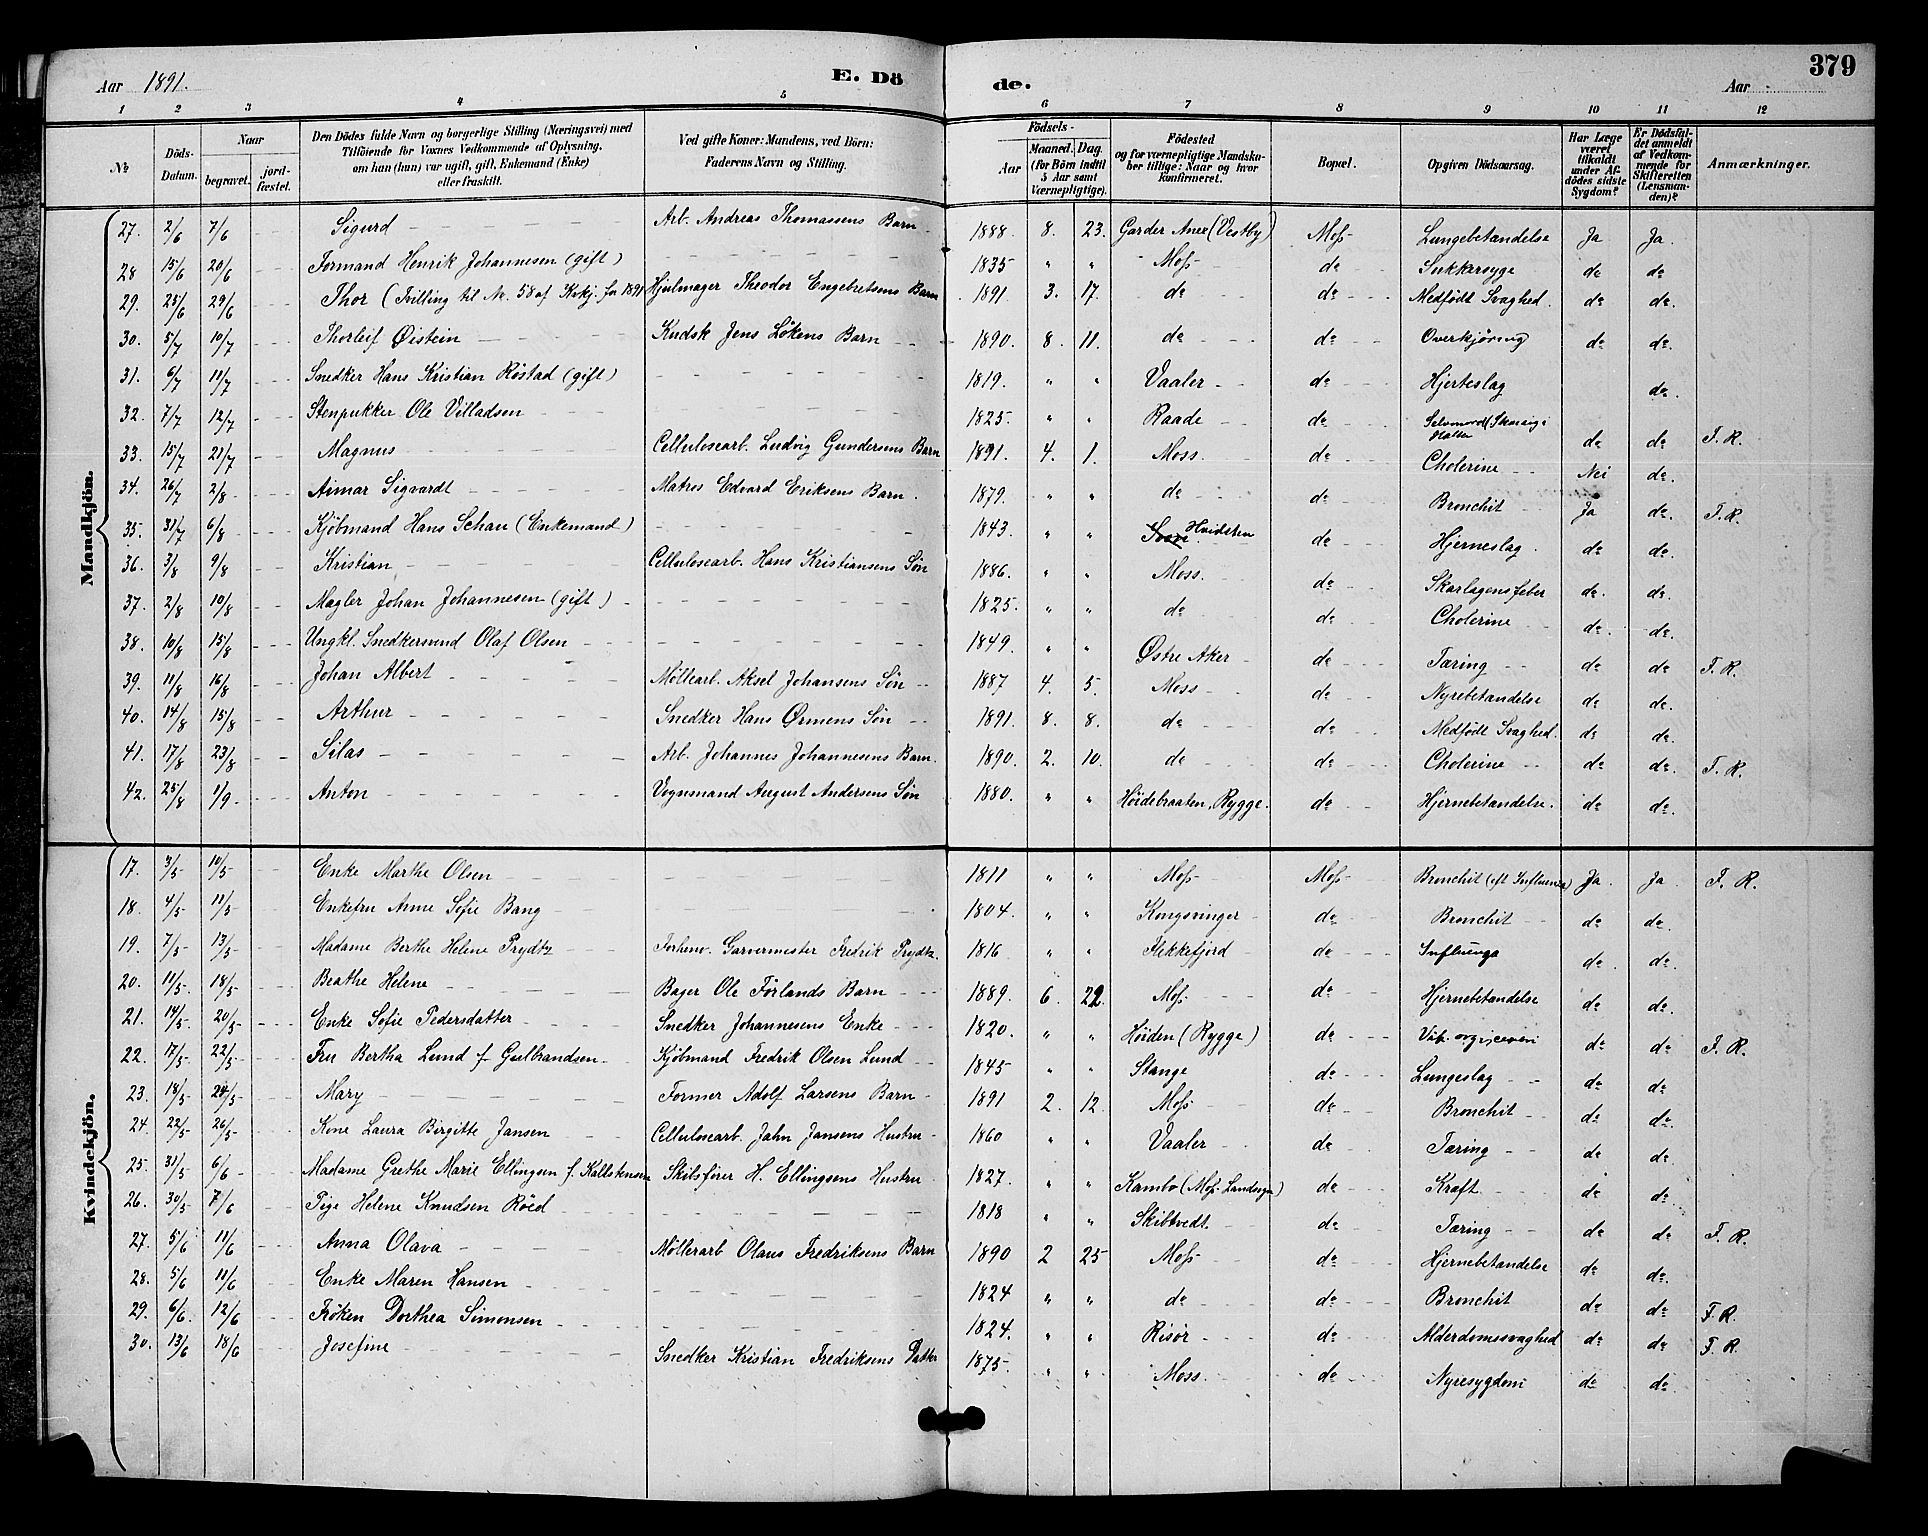 Aar 1891. E. Dö de. Aar 379
1 2 3 4 5 6 7 8 9 10 11 12
№ Döds-Datum. Naar begravet. jordfæstet. Den Dödes fulde Navn og borgerlige Stilling (Næringsvei) med Tilföiende for Voxnes Vedkommende af Oplysning, om han (hun) var ugift, gift, Enkemand (Enke) eller fraskilt. Ved gifte Koner: Mandens, ved Börn: Faderens Navn og Stilling. Födsels- Aar Maaned. Dag. (for Börn indtil 5 Aar samt Værnepligtige). Födested og for værnepligtige Mandskaber tillige: Naar og hvor konfirmeret. Bopæl. Opgiven Dödsaarsag. Har Læge været tilkaldt under Afdödes sidste Sygdom? Er Dödsfaldet anmeldt af Vedkommende for Skifteretten (Lensmanden)? Anmærkninger.
Mandkjön.
27. 2/6 7/6 Sigurd Arb. Andreas Thomassens Barn 1888 8. 23. Garder Anex (Vestby) Moss Lungebetændelse Ja Ja.
28 15/6 20/6 Formand Henrik Johannesen (gift) 1835 " " Moss do Sukkersyge do do
29. 25/6 29/6 Thor (Tvilling til No. 58 af Kvkj. for 1891 Hjulmager Theodor Engebretsens Barn 1891 3. 17. do do Medfödt Svaghed. do do.
30. 5/7 10/7 Thorleif Øistein Kudsk Jens Lökens Barn 1890. 8. 11. do do Overkjöring do do.
31. 6/7 11/7 Snedker Hans Kristian Röstad (gift) 1819. " " Vaaler do Hjerteslag do.
32. 7/7 12/7 Stenpukker Ole Villadsen 1825. " " Raade do Selvmord (Skaaret i Halsen do do F. R.
33. 15/7 21/7 Magnus Cellulosearb. Ludvig Gundersens Barn 1891. 4. 1. Moss. do Cholerine Nei do.
34. 26/7 2/8 Aimar Sigvardt Matros Edvard Eriksens Barn. 1879. " " do do Bronchit Ja do. F. R.
35. 31/7 6/8 Kjöbmand Hans Schau (Enkemand) 1843. " " Hvidsten do Hjerneslag. do do.
36. 3/8 9/8 Kristian Cellulosearb. Hans Kristiansens Sön 1886. " " Moss. do Skarlagensfeber do. do.
37. 2/8 10/8 Mægler Johan Johannesen (gift) 1825. " " do do Cholerine do. do.
38. 10/8 15/8 Ungkl. Snedkersvend Olaf Olsen 1849. " " Østre Aker do Tæring do do F. R.
39. 11/8 16/8 Johan Albert Möllearb. Aksel Johansens Sön 1887 4. 5. Moss do Nyrebetændelse do do.
40. 14/8 15/8 Arthur Snedker Hans Ørmens Sön 1891. 8. 8. do do Medfödt Svaghed. do do.
41. 17/8 23/8 Silas Arb. Johannes Johannesens Barn. 1890. 2. 10. do do Cholerine do do. F. R.
42. 25/8 1/9 Anton Vognmand August Andersens Sön 1880. " " Höidebraaten, Rygge. do Hjernebetændelse. do do.
Kvindekjön.
17. 3/5 10/5 Enke Marthe Olsen 1811 " " Moss Moss Bronchit (eft Influenza) Ja. Ja. F. R.
18. 4/5 11/5 Enkefru Anne Sofie Bang 1804. " " Kongsvinger do Bronchit do do.
19. 7/5 13/5 Madame Berthe Helene Prydtz Forhenv. Garvermester Fredrik Prydtz. 1816 " " Flekkefjord do Influenza do. do.
20. 11/5 18/5 Beathe Helene Bager Ole Förlands Barn 1889. 6. 22. Moss do Hjernebetændelse do do.
21. 14/5 20/5 Enke Sofie Pedersdatter Snedker Johannesens Enke 1820. " " Höiden (Rygge) do Vit. do do F. R.
22. 17/5 22/5 Fru Bertha Lund f. Gulbrandsen Kjöbmand Fredrik Olsen Lund 1845 " " Stange do Lungeslag do do
23. 18/5 24/5 Mary Former Adolf Larsens Barn 1891 2. 12. Moss do Bronchit do do.
24. 22/5 26/5 Kone Laura Birgitte Jansen Cellulosearb. Jahn Jansens Hustru 1860 " " Vaaler do Tæring do do.
25. 31/5 6/6 Madame Grethe Marie Ellingsen f. Kallstensen Skibsförer H. Ellingsens Hustru 1827. " " Kambo (Moss Landsogn) do Kræft do do.
26. 30/5 7/6 Pige Helene Knudsen Röed 1818 " " Skibtvedt. do Tæring do do. F. R.
27. 5/6 11/6 Anna Olava Möllerarb Olaus Fredriksens Barn 1890 2 25 Moss do Hjernebetændelse do do.
28. 5/6 11/6 Enke Maren Hansen 1824 " " do do Bronchit do do F. R.
29. 6/6. 12/6 Fröken Dorthea Simonsen 1824. " " Risör do Alderdomssvaghed do do F. R.
30. 13/6 18/6 Josefine Snedker Kristian Fredriksens Datter 1875 " " Moss. do Nyresygdom do do